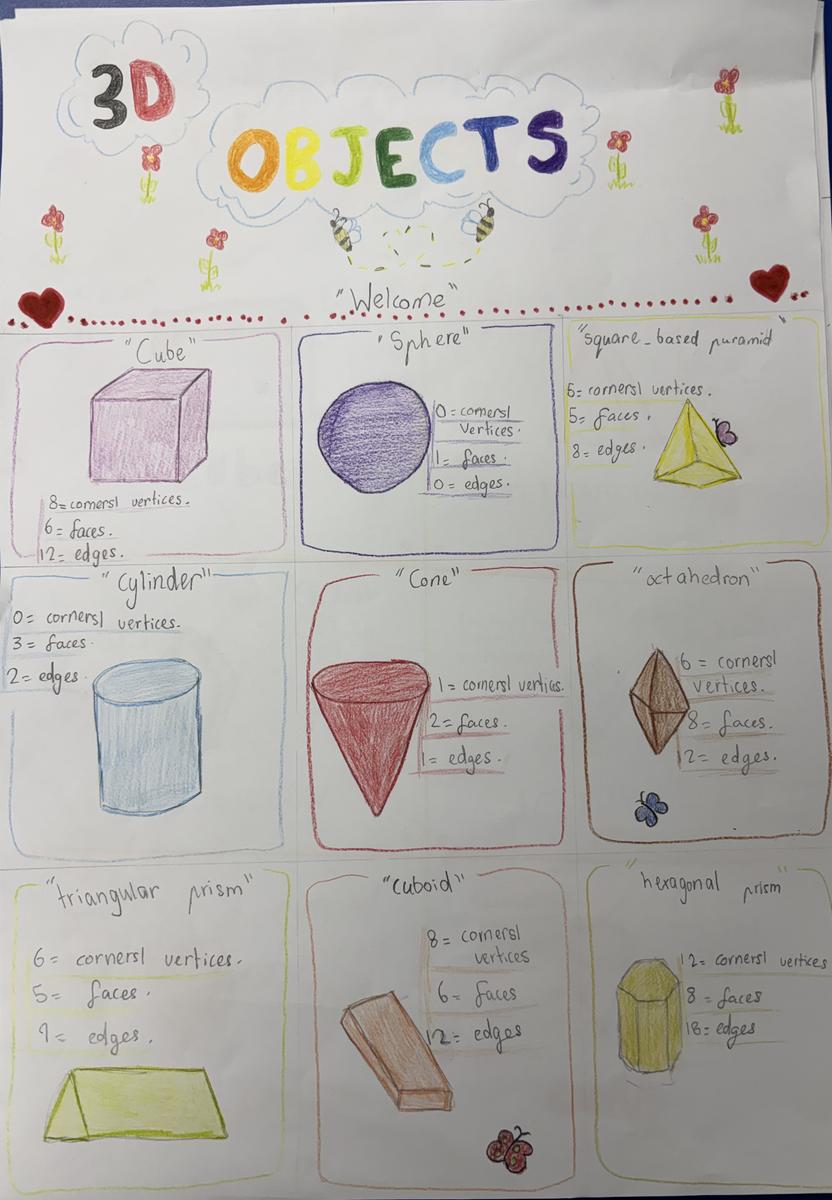 3D
OBJECTS
"Welcome"
"Cube"
8= corners/ vertices.
6= faces.
12= edges.
"Sphere"
0= corners/
vertices.
1= faces.
0= edges.
"square-based puramid"
5= corners/ vertices.
5= faces.
8= edges.
"cylinder"
0= corners/ vertices.
3= faces.
2= edges.
"Cone"
1= corners/ vertices.
2= faces.
1= edges.
"octahedron"
6= corners/
vertices.
8= faces.
12= edges.
"triangular prism"
6= corners/ vertices.
5= faces.
9= edges.
"cuboid"
8= corners/
vertices
6= faces
12= edges
"hexagonal prism"
12= corners/ vertices
8= faces
18= edges